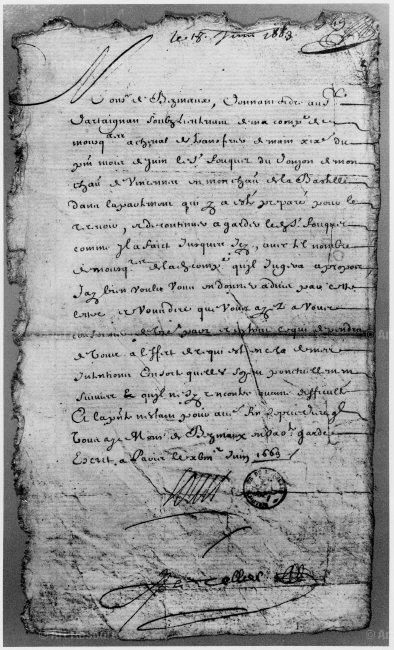 le 18. Juin 1663
Monsr. de Bezmaux, Donnant ordre au Sr.
Dartaignan soubzlieutenant de ma compie. de
mousqres a cheval de transferer demain xixe. du
pnt mois de Juin le Sr. fouquet du Donjon de mon
chau. de Vincennes en mon chau. de la Bastille
dans lapartement qui y a esté preparé pour le
recevoir, et de continuer a garder led. Sr. fouquet
comme Jl a faict Jusques Jcy, avec tel nombre
de mousqres de lad. compie. quil Jugera a propos
Jay bien voulu vous en donner advis par cette
lettre, et vous dire que vous ayez a vous
en tout ce qui dependra
de vous a leffect de ce qui est en cela de mes
Intentions Ensorte quelles soyent ponctuellement
suivies & quil ne sy rencontre aucune difficulté
Et la pnte nestant pour autre fin Je prie Dieu quil
vous ayt Monsr. de Bezmaux en sa ste. garde
Escrit a Paris le Juin 1663
Louis